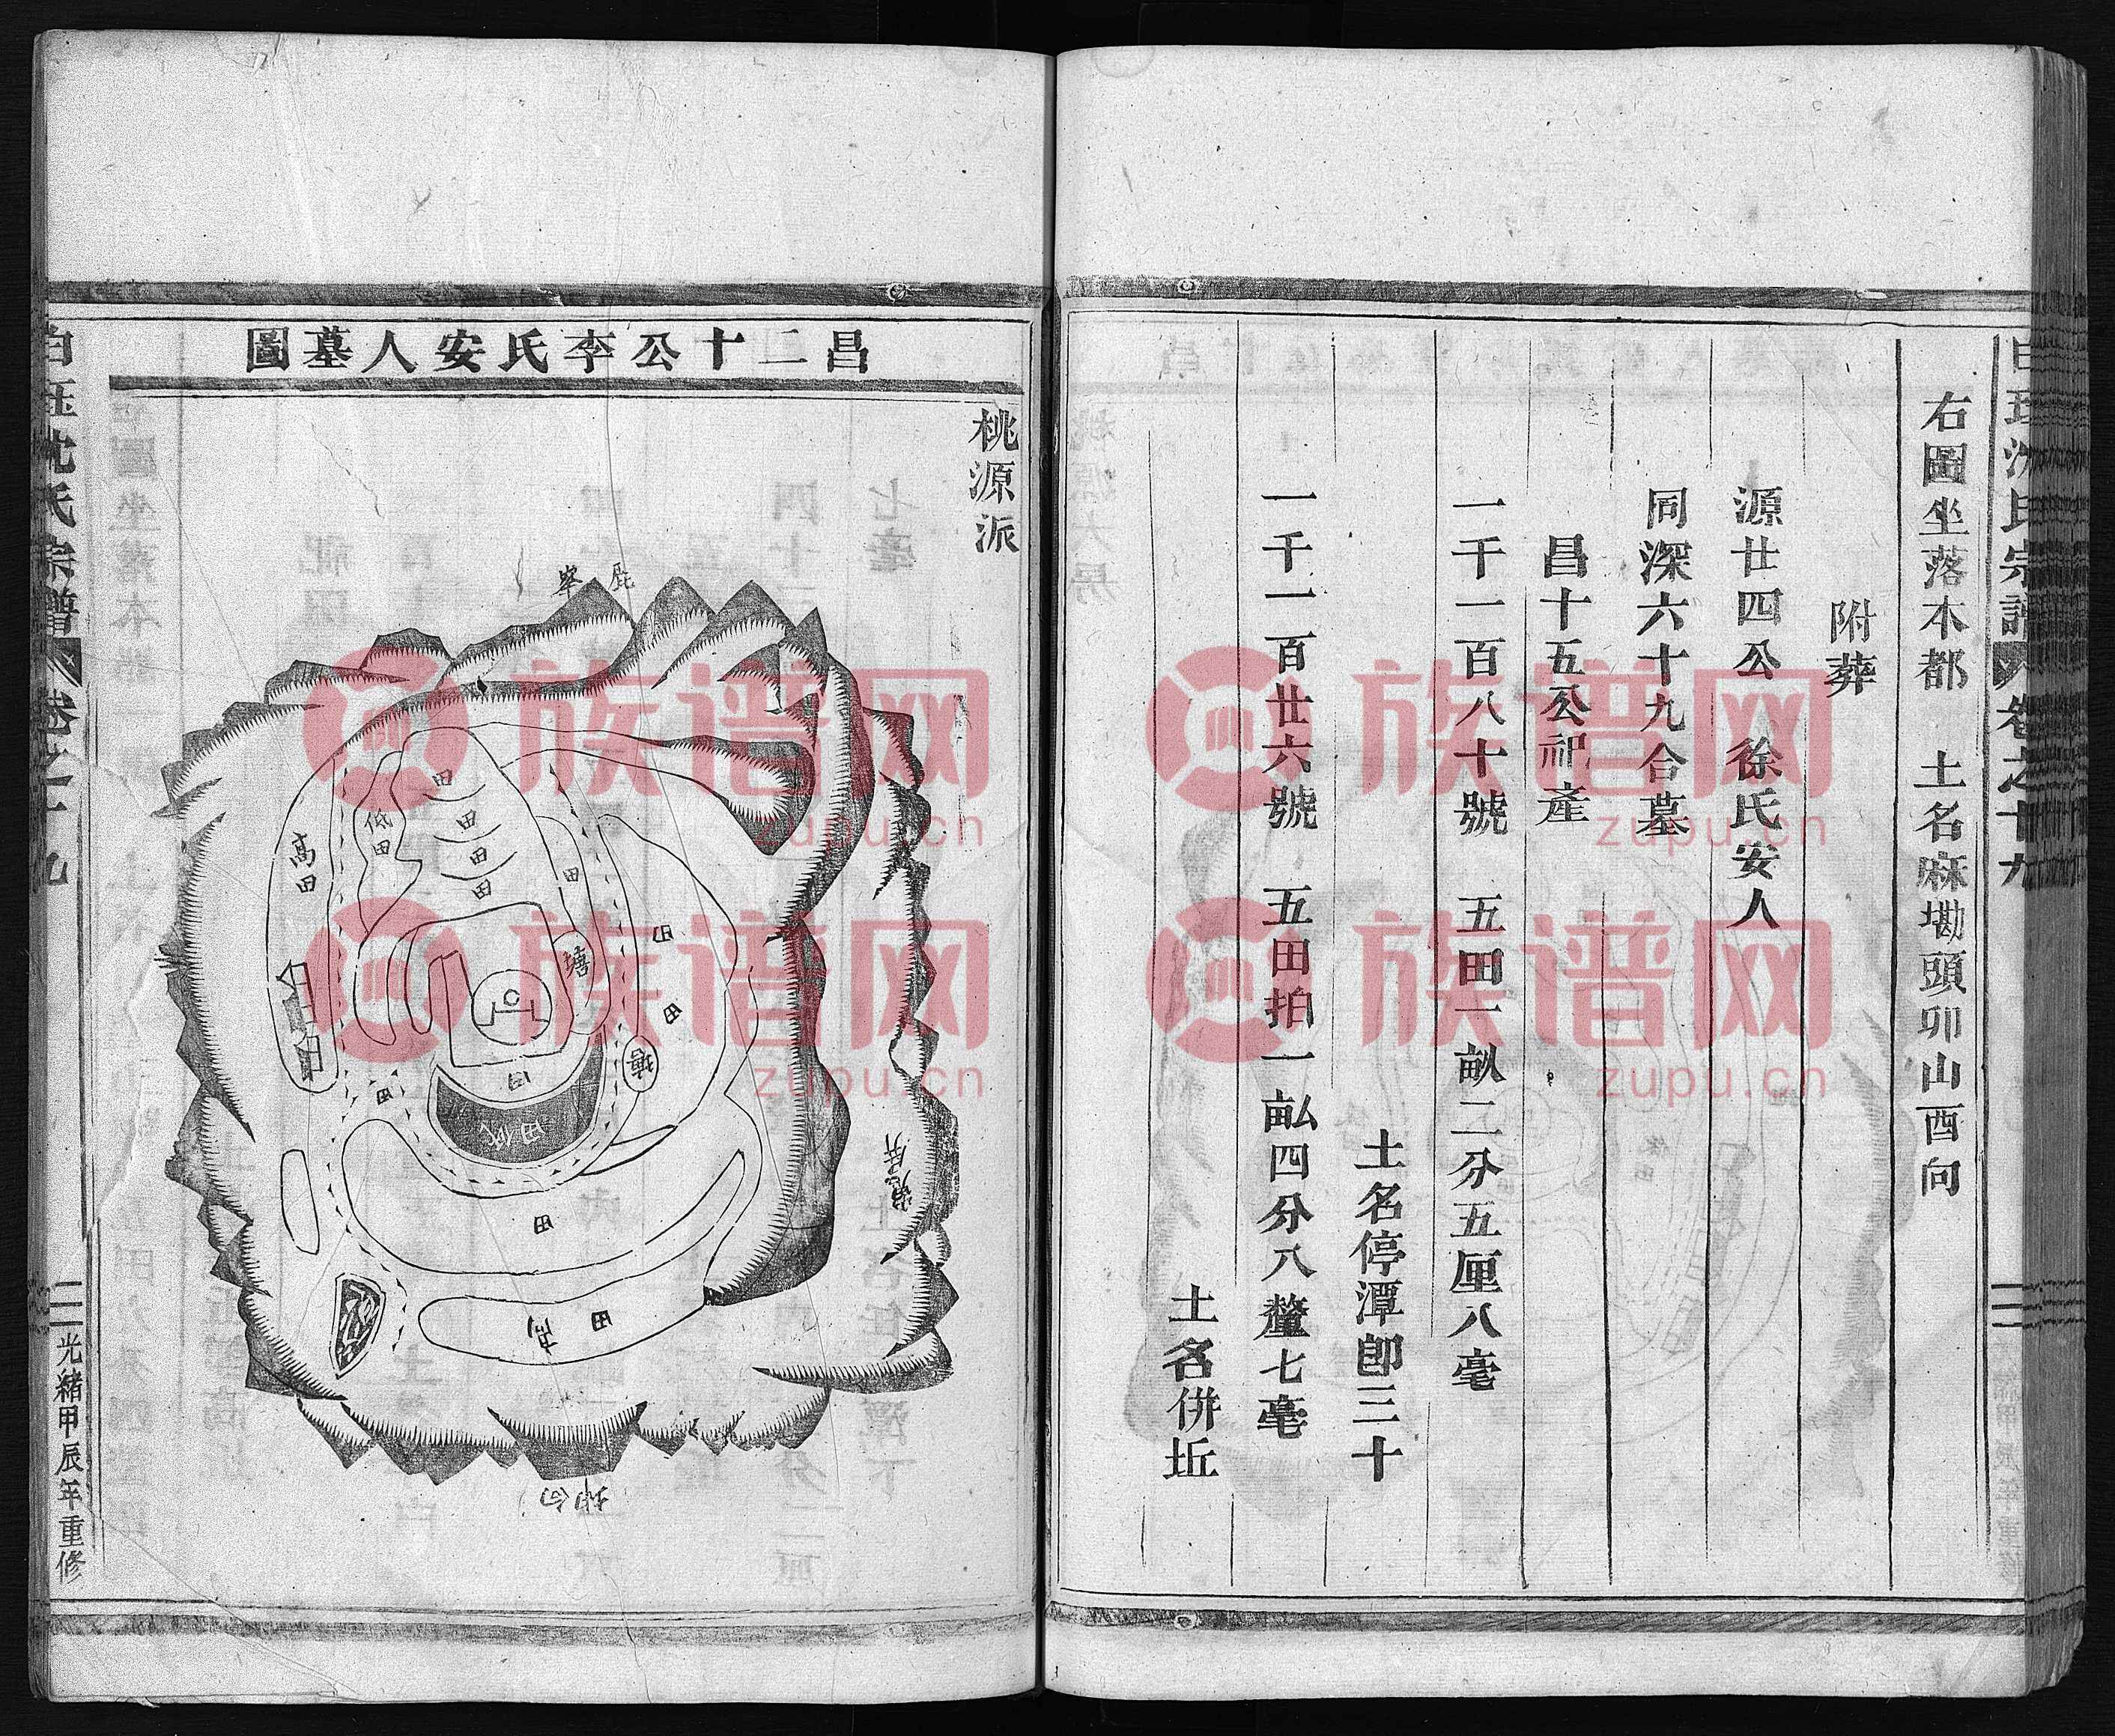 右圖坐落本都　土名麻墈頭卯山酉向
附葬
源廿四公　徐氏安人
同深六十九合墓
昌十五公祀產
一千一百八十號　五田一畝二分五厘八毫
土名停潭卽三十
一千一百廿六號　五田拍一畝四分八釐七毫
土名併坵
昌二十公李氏安人墓圖
桃源派
峯
田
低田
田
田
田
高田
田
塘
田
田
塘
田
田
低田
田
田
高
沈氏宗譜
卷之十九
光緒甲辰年重修
族谱网
zupu.cn
族谱网
zupu.cn
族谱网
zupu.cn
族谱网
zupu.cn